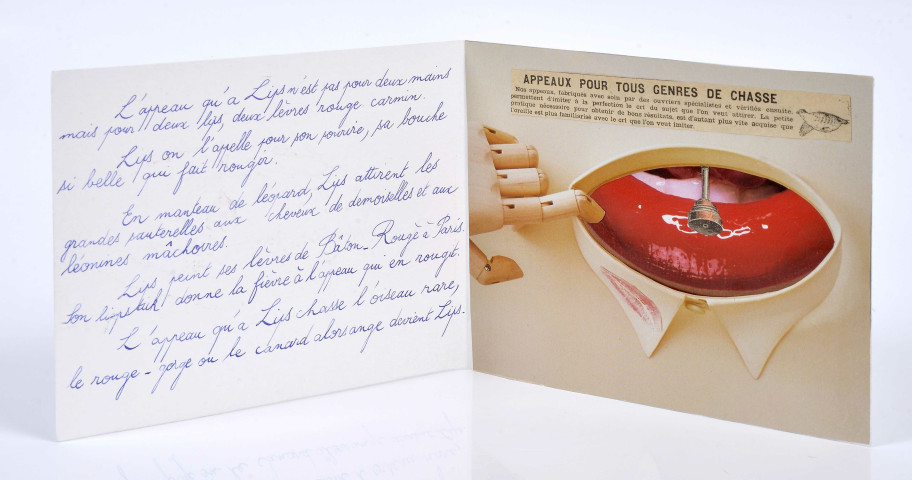 L'appeau qu'a Lips n'est pas pour deux mains
mais pour deux lips, deux lèvres rouge carmin.
Lips on l'appelle pour son sourire, sa bouche
si belle qui fait rougir.
En manteau de léopard, Lips attirent les
grandes sauterelles aux cheveux de demoiselles et aux
léonines mâchoires.
Lips peint ses lèvres de Bâton-Rouge à Paris.
Son lipstick donne la fièvre à l'appeau qui en rougit.
L'appeau qu'a Lips chasse l'oiseau rare,
le rouge-gorge ou le canard alors ange devient Lips.
APPEAUX POUR TOUS GENRES DE CHASSE
Nos appeaux, fabriqués avec soin par des ouvriers spécialistes et vérifiés ensuite,
permettent d'imiter à la perfection le cri du sujet que l'on veut attirer. La petite
pratique nécessaire pour obtenir de bons résultats, est d'autant plus vite acquise que
l'oreille est plus familiarisée avec le cri que l'on veut imiter.